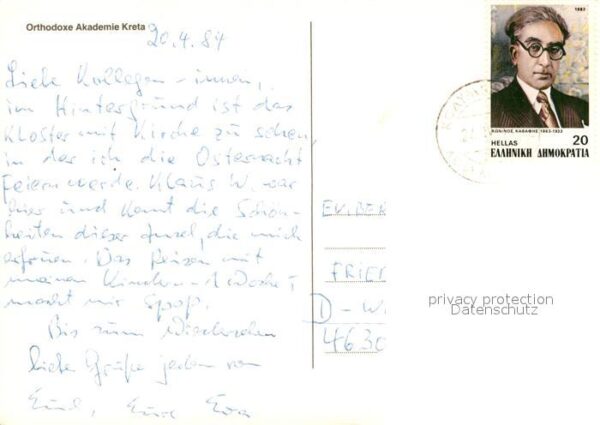 Orthodoxe Akademie Kreta
20.4.84
Liebe Kollegen-innen,
im Hintergrund ist das
Kloster mit Kirche zu sehen
in der ich die Osternacht
feiern werde. Klaus W. war
hier und kennt die Schön-
heiten dieser Insel, die mich
erfreuen. Das Reisen mit
meinen Kindern - 1 Woche
macht mir Spaß.
Bis zum Wiedersehen
liebe Grüße jedem von
Eure Eva
EV. BE
FRIE
D - W
4630
1983
ΚΩΝ/ΝΟΣ ΚΑΒΑΦΗΣ, 1863-1933
HELLAS 20
ΕΛΛΗΝΙΚΗ ΔΗΜΟΚΡΑΤΙΑ
privacy protection
Datenschutz